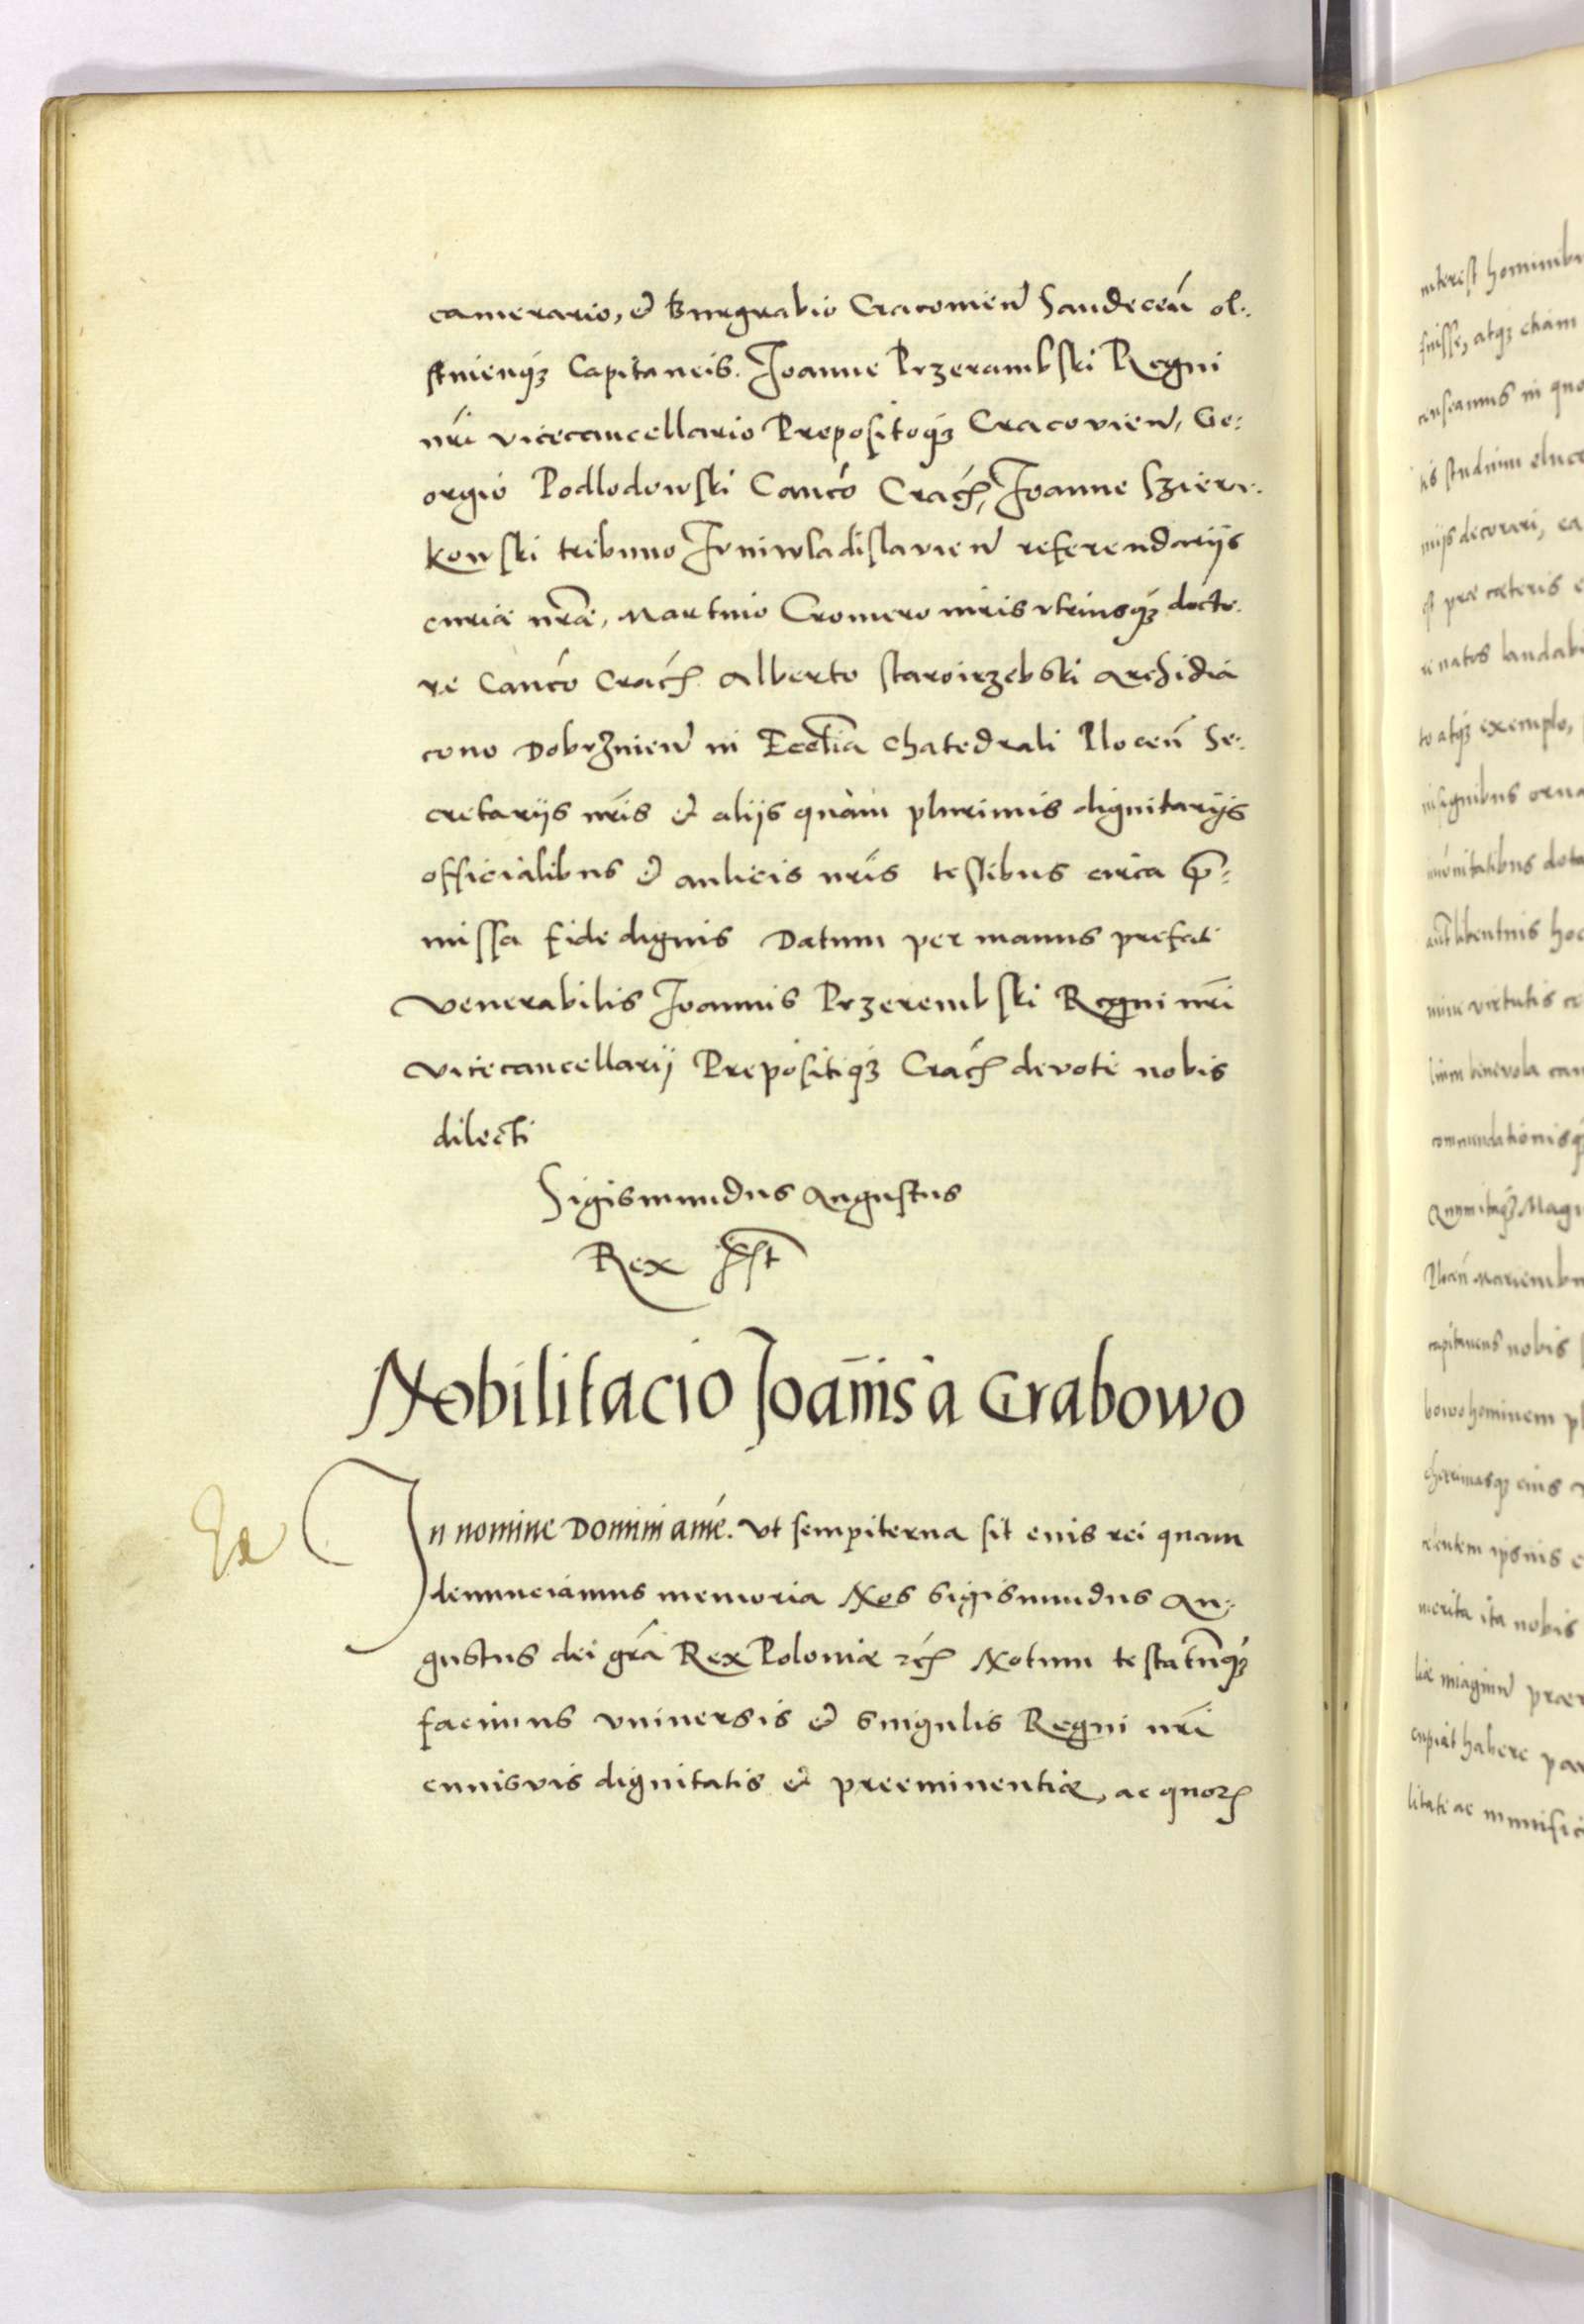 camerario, et Burgrabio Cracouien̄ Sandecen̄ ol:
stinenq́ꝫ Capitaneis. Joanne Przerambski Regni
nr̄i vicecancellario Prepositoq́ꝫ Cracovien̄, Ge:
orgio Podlodowski Canco Crac̄, Joanne Szier:
kowski tribuno Juniwladislavien̄ referendarijs
curiæ nr̄æ, Martino Cromero iuris vtriusq́ꝫ docto:
re Canco Crac̄ Alberto Staroirzebski Archidia
cono Dobrznien̄ in Eccl̄ia Chatedrali Plocen̄ Se:
cretarijs nr̄is et alijs quàm plurimis dignitarijs
officialibus et aulicis nr̄is testibus circa p̄:
missa fide dignis Datum per manus prefati
venerabilis Joannis Przerembski Regni nr̄i
vicecancellarij Prepositiq́ꝫ Crac̄ devote nobis
dilecti
Sigismundus Augustus
Rex sst
Nobilitacio Joan̄is a Grabowo
Ex
In nomine Domini amē. Ut sempiterna sit euis rei quam
denunciamus memoria Nos Sigismundus Au:
gustus dei gr̄a Rex Poloniæ ꝛc̄ Notum testatūq́ꝫ
facimus vniuersis et singulis Regni nr̄i
cuiusvis dignitatis et preeminentiæ, ac quoꝝ
interest hominibu
fuisse, atqꝫ etiam
censeamus in quo
is studium eluce
mijs decorari, ea
st præ cæteris e
re natos laudab
to atqꝫ exemplo,
insignibus orna
mūnitatibus dota
aut libentius hoc
nium virtutis ce
lium benevola
commendationisq́
Quumitaqꝫ Mag
Plocen̄ Mariembu
capitaneus nobis
bowo hominem pl
charissimasqꝫ eius
cedentem ipsius e
merita ita nobis
liæ imaginū præe
cupiat habere par
litate ac munifici